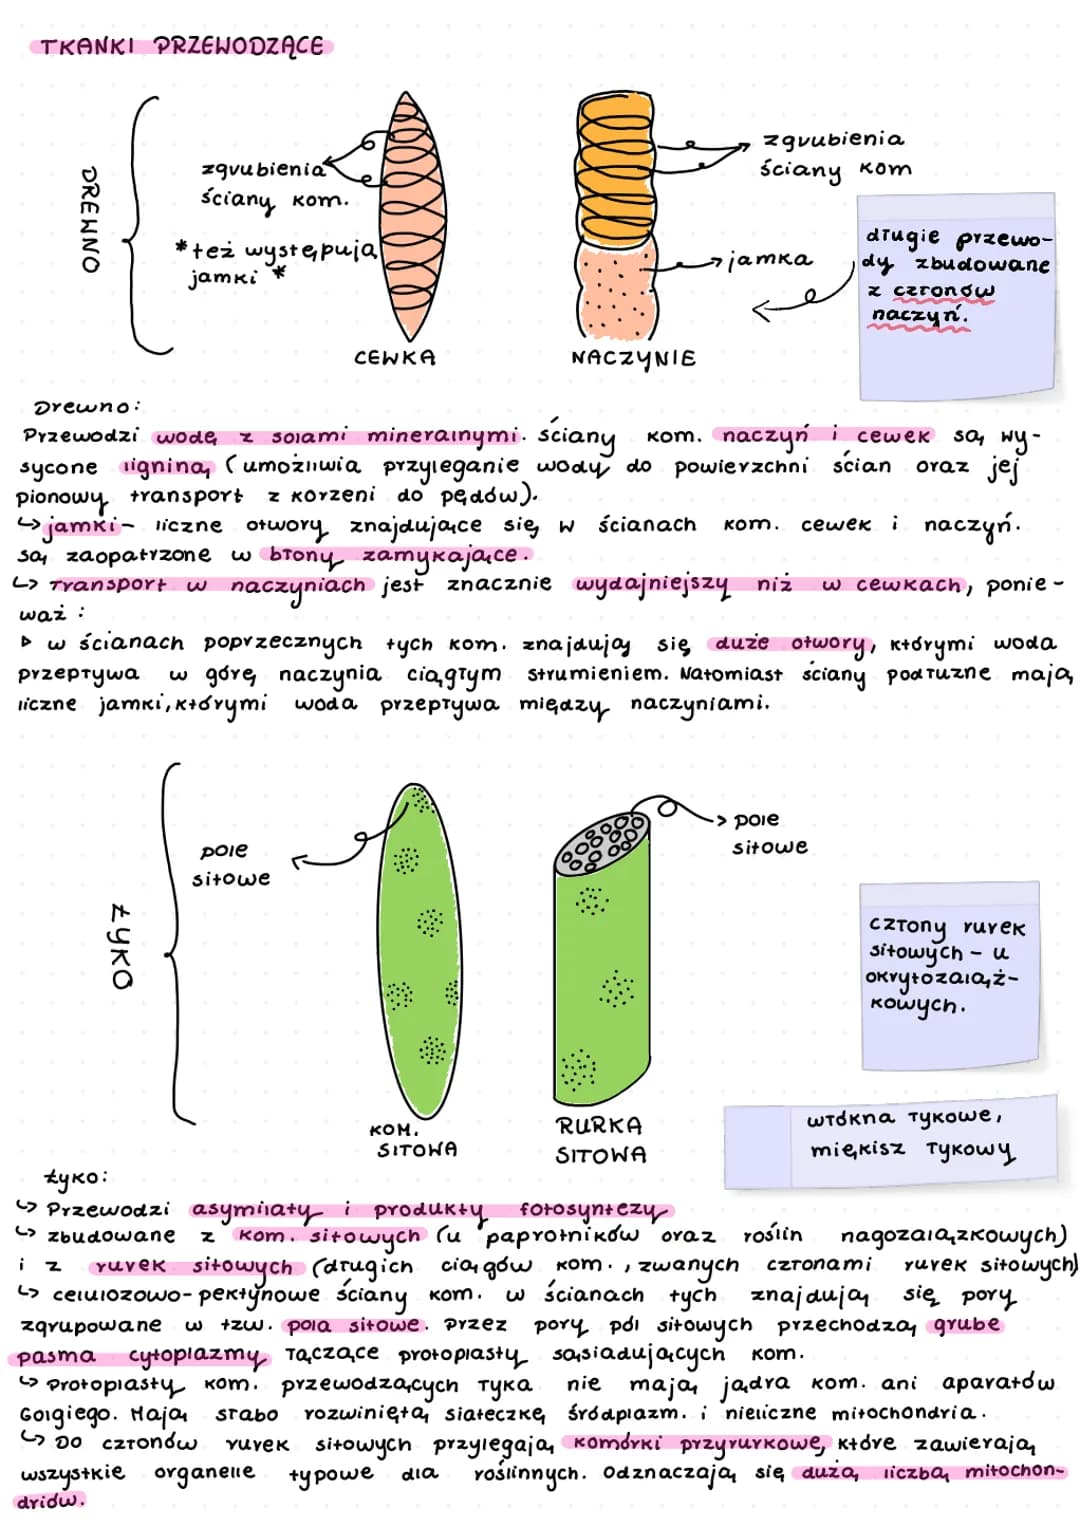 TKANKI PRZEWODZĄCE
DREWNO
zgrubienia
ściany kom.
*też występują
jamki *
CEWKA
zgrubienia
ściany kom
jamka
NACZYNIE
długie przewo-
dy zbudowane
z członów
naczyń.
Drewno:
Przewodzi wodę z solami mineralnymi. Ściany kom. naczyń i cewek są wy-
sycone ligniną (umożliwia przyleganie wody do powierzchni ścian oraz jej
pionowy transport z korzeni do pędów).
↳ jamki- liczne otwory znajdujące się w ścianach kom. cewek i naczyń.
są zaopatrzone w błony zamykające.
↳ Transport w naczyniach jest znacznie wydajniejszy niż w cewkach, ponie-
waż :
▹ w ścianach poprzecznych tych kom. znajdują się duże otwory, którymi woda
przepływa w górę naczynia ciągłym strumieniem. Natomiast ściany podłużne mają
liczne jamki, którymi woda przepływa między naczyniami.
ŁYKO
pole
sitowe
KOM.
SITOWA
pole
sitowe
RURKA
SITOWA
człony rurek
sitowych - u
okrytozaląż-
kowych.
włókna łykowe,
miękisz łykowy
Łyko:
↳ Przewodzi asymilaty i produkty fotosyntezy
↳ zbudowane z kom. sitowych (u paprotników oraz roślin nagozalązkowych)
i z rurek sitowych (długich ciągów kom., zwanych członami rurek sitowych)
↳ celulozowo-pektynowe ściany kom. w ścianach tych znajdują się pory
zgrupowane w tzw. pola sitowe. Przez pory pól sitowych przechodzą grube
pasma cytoplazmy łączące protoplasty sąsiadujących kom.
↳ Protoplasty kom. przewodzących łyka nie mają jądra kom. ani aparatów
Golgiego. Mają słabo rozwiniętą siateczkę śródplazm. i nieliczne mitochondria.
↳ Do członów rurek sitowych przylegają komórki przyrurkowe, które zawierają
wszystkie organelle typowe dla roślinnych. Odznaczają się dużą liczbą mitochon-
driów.